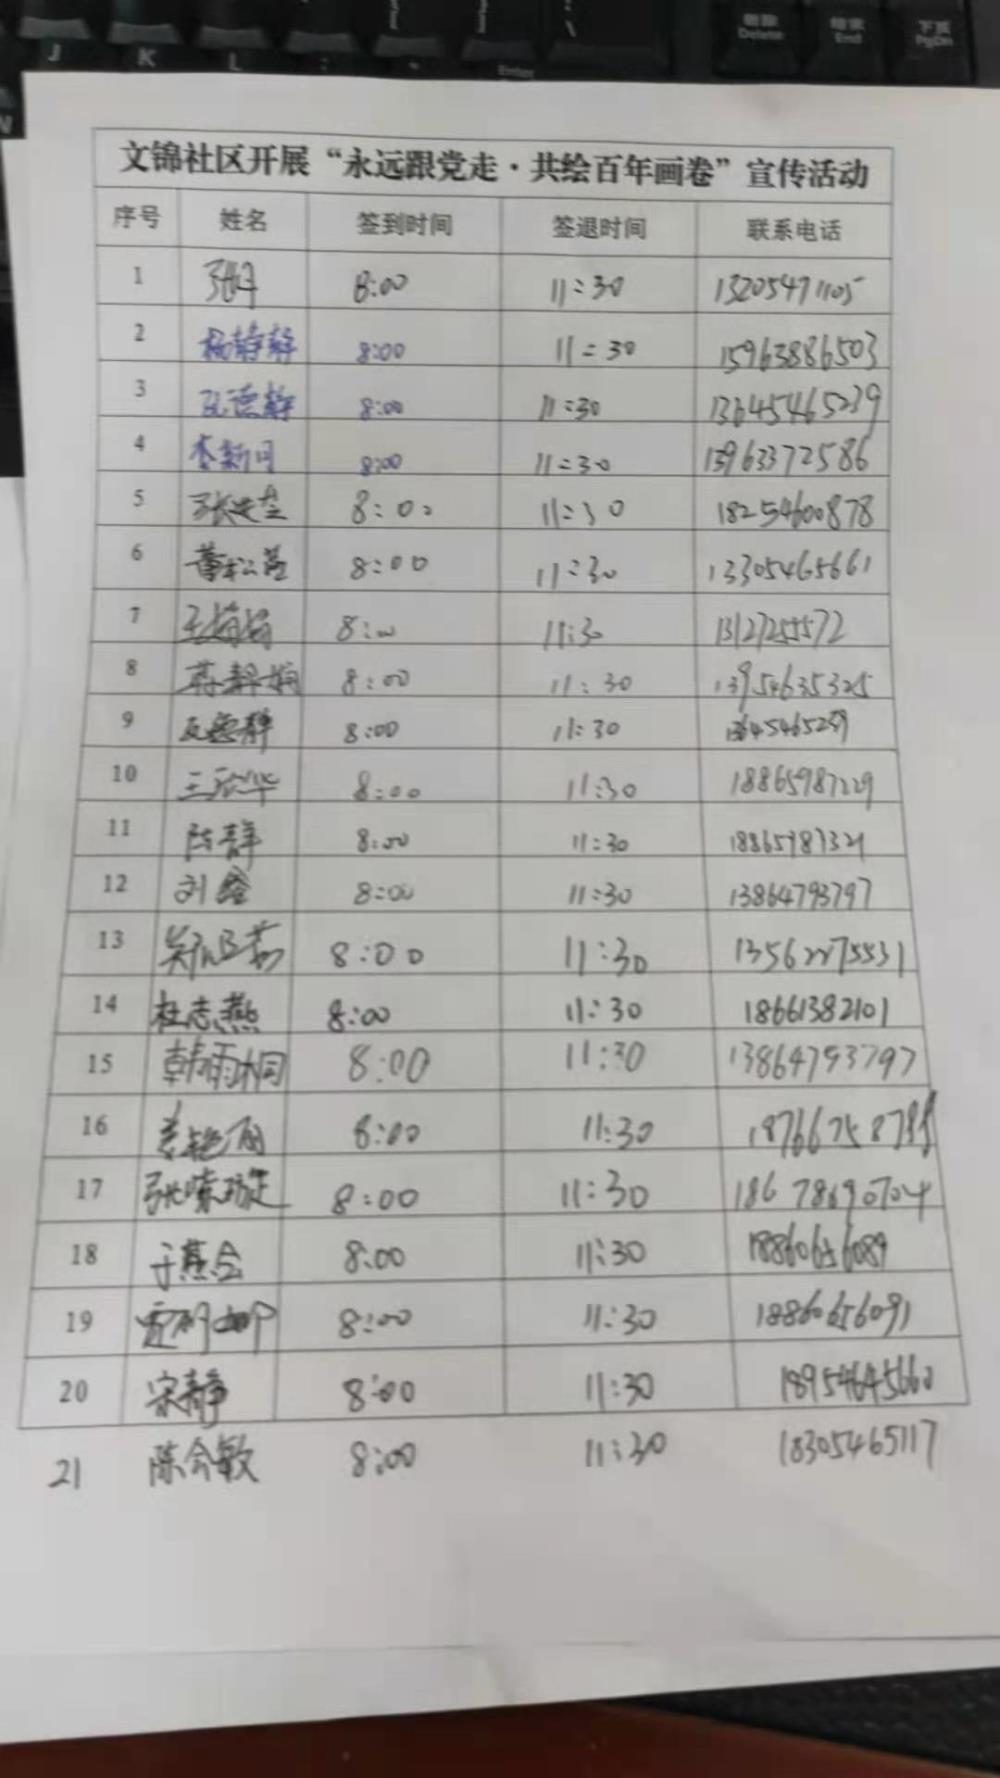 J K L : Enter
删除 Delete 结束 End 下页 PgDn
文锦社区开展“永远跟党走·共绘百年画卷”宣传活动
序号 姓名 签到时间 签退时间 联系电话
1 张丹 8:00 11:30 13205471105
2 杨静静 8:00 11:30 15963886503
3 孔德静 8:00 11:30 13645465239
4 李新月 8:00 11:30 13963372586
5 8:00 11:30 18254600878
6 董松营 8:00 11:30 13305465661
7 8:00 11:30 13127255572
8 蒋静娴 8:00 11:30 13954635325
9 孔德静 8:00 11:30 13645465239
10 王欣华 8:00 11:30 18865987229
11 陈静 8:00 11:30 18865987321
12 刘鑫 8:00 11:30 13864793797
13 8:00 11:30 13562275531
14 杜志燕 8:00 11:30 18661382101
15 韩雨桐 8:00 11:30 13864793797
16 8:00 11:30
17 8:00 11:30 18678690704
18 于燕会 8:00 11:30 18860656089
19 8:00 11:30 18860656091
20 宋静 8:00 11:30 18954645660
21 陈会敏 8:00 11:30 18305465117